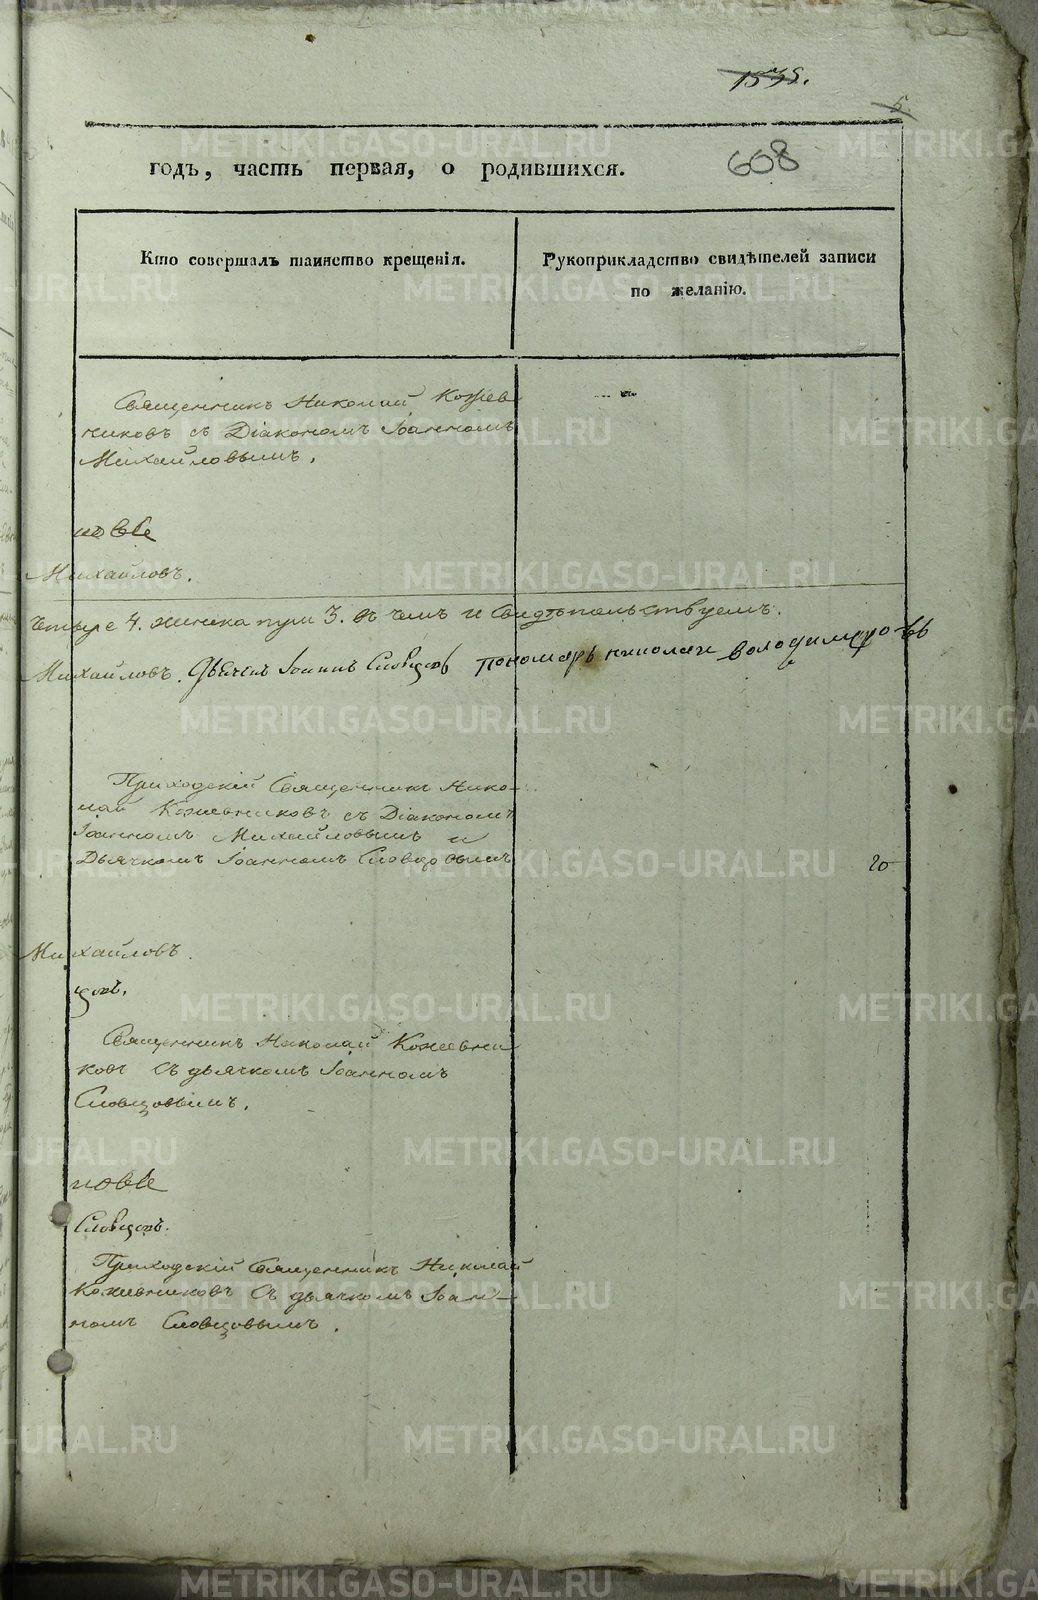 1535.
5
608
годъ, часть первая, о родившихся.
Кто совершалъ таинство крещенія.
Рукоприкладство свидѣтелей записи
по желанію.
Священникъ Николай Кожев
никовъ съ Діакономъ Іоанномъ
Михайловымъ.
Михайловъ.
четыре 4. женска пули 3. въ чемъ и свидѣтельствуемъ.
Михайловъ. Дьячекъ Іоаннъ Словцовъ пономарь николаи володимеровъ
Приходскій Священникъ Нико-
лай Кожевниковъ съ Діакономъ
Іоанномъ Михайловымъ и
Дьячкомъ Іоанномъ Словцовымъ
20
Михайловъ.
цовъ.
Священникъ Николай Кожевни
ковъ съ дьячкомъ Іоанномъ
Словцовымъ.
Словцовъ.
Приходскій Священникъ Николай
Кожевниковъ съ дьячкомъ Іоан-
номъ Словцовымъ.
METRIKI.GASO-URAL.RU